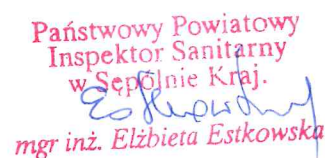 Państwowy Powiatowy
Inspektor Sanitarny
w Sępólnie Kraj.
Estkowska
mgr inż. Elżbieta Estkowska